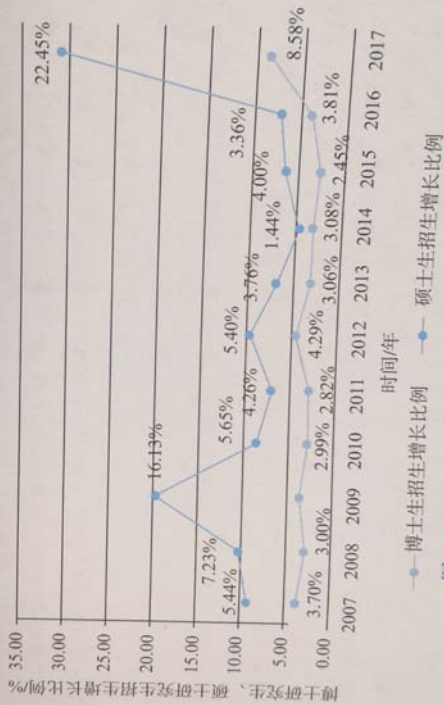 博士研究生、硕士研究生招生增长比例/%
35.00
30.00
25.00
20.00
15.00
10.00
5.00
0.00
5.44%
7.23%
16.13%
5.65%
4.26%
5.40%
3.76%
1.44%
4.00%
3.36%
22.45%
3.70%
3.00%
2.99%
2.82%
4.29%
3.06%
3.08%
2.45%
3.81%
8.58%
2007 2008 2009 2010 2011 2012 2013 2014 2015 2016 2017
时间/年
博士生招生增长比例 硕士生招生增长比例